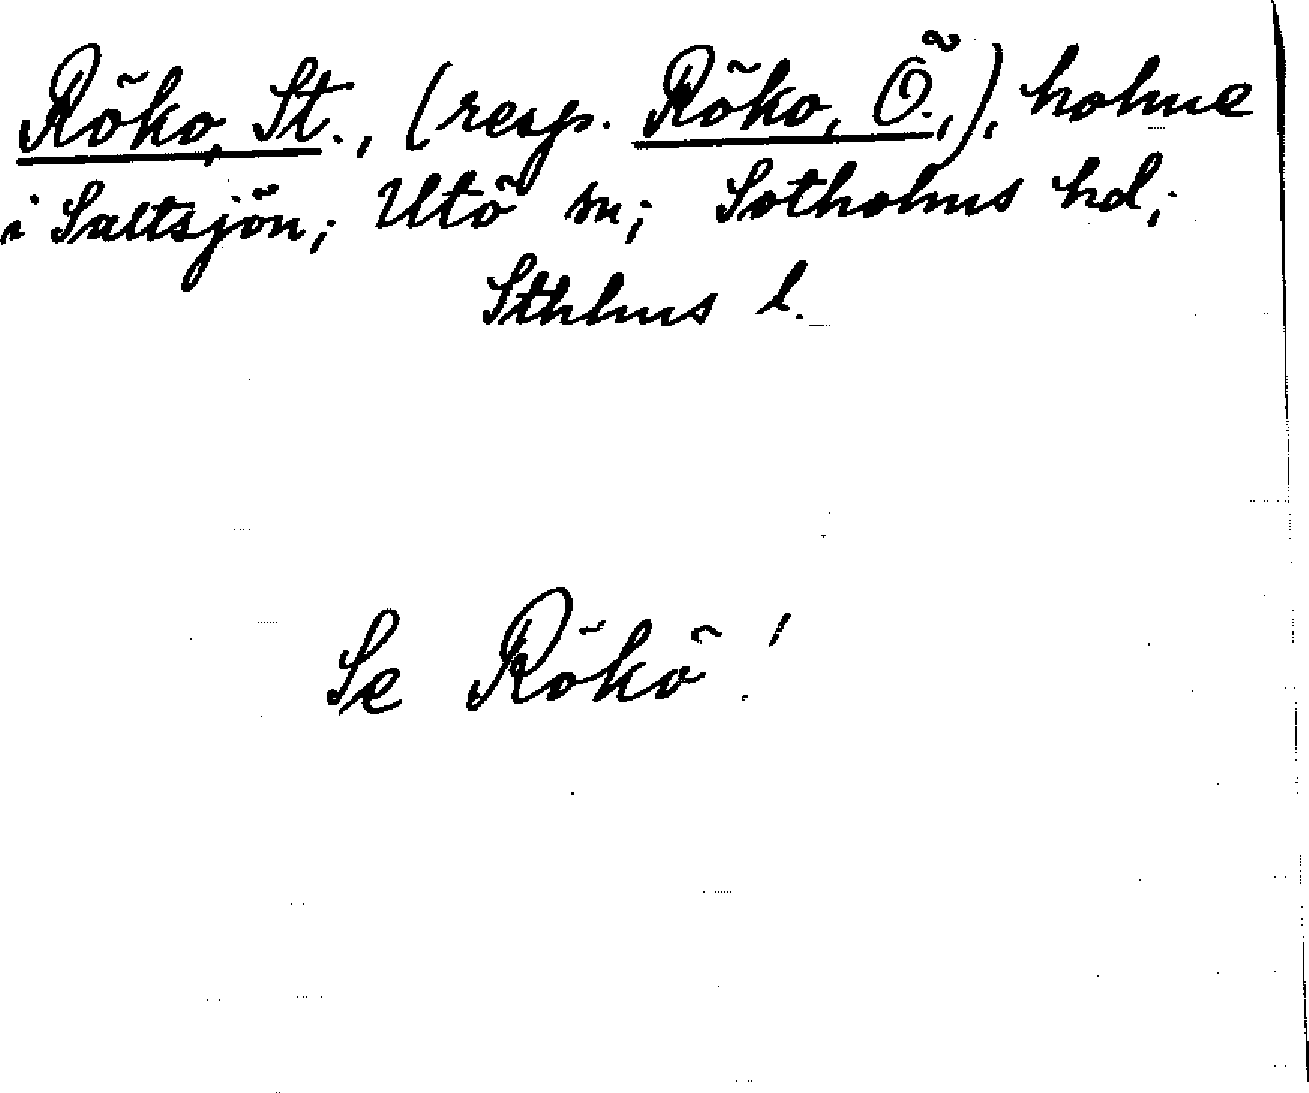 Röko, St., (resp. Röko, Ö.,), holme
i Saltsjön; Utö sn; Sotholms hd,
Sthlms l.
Se Rökö!